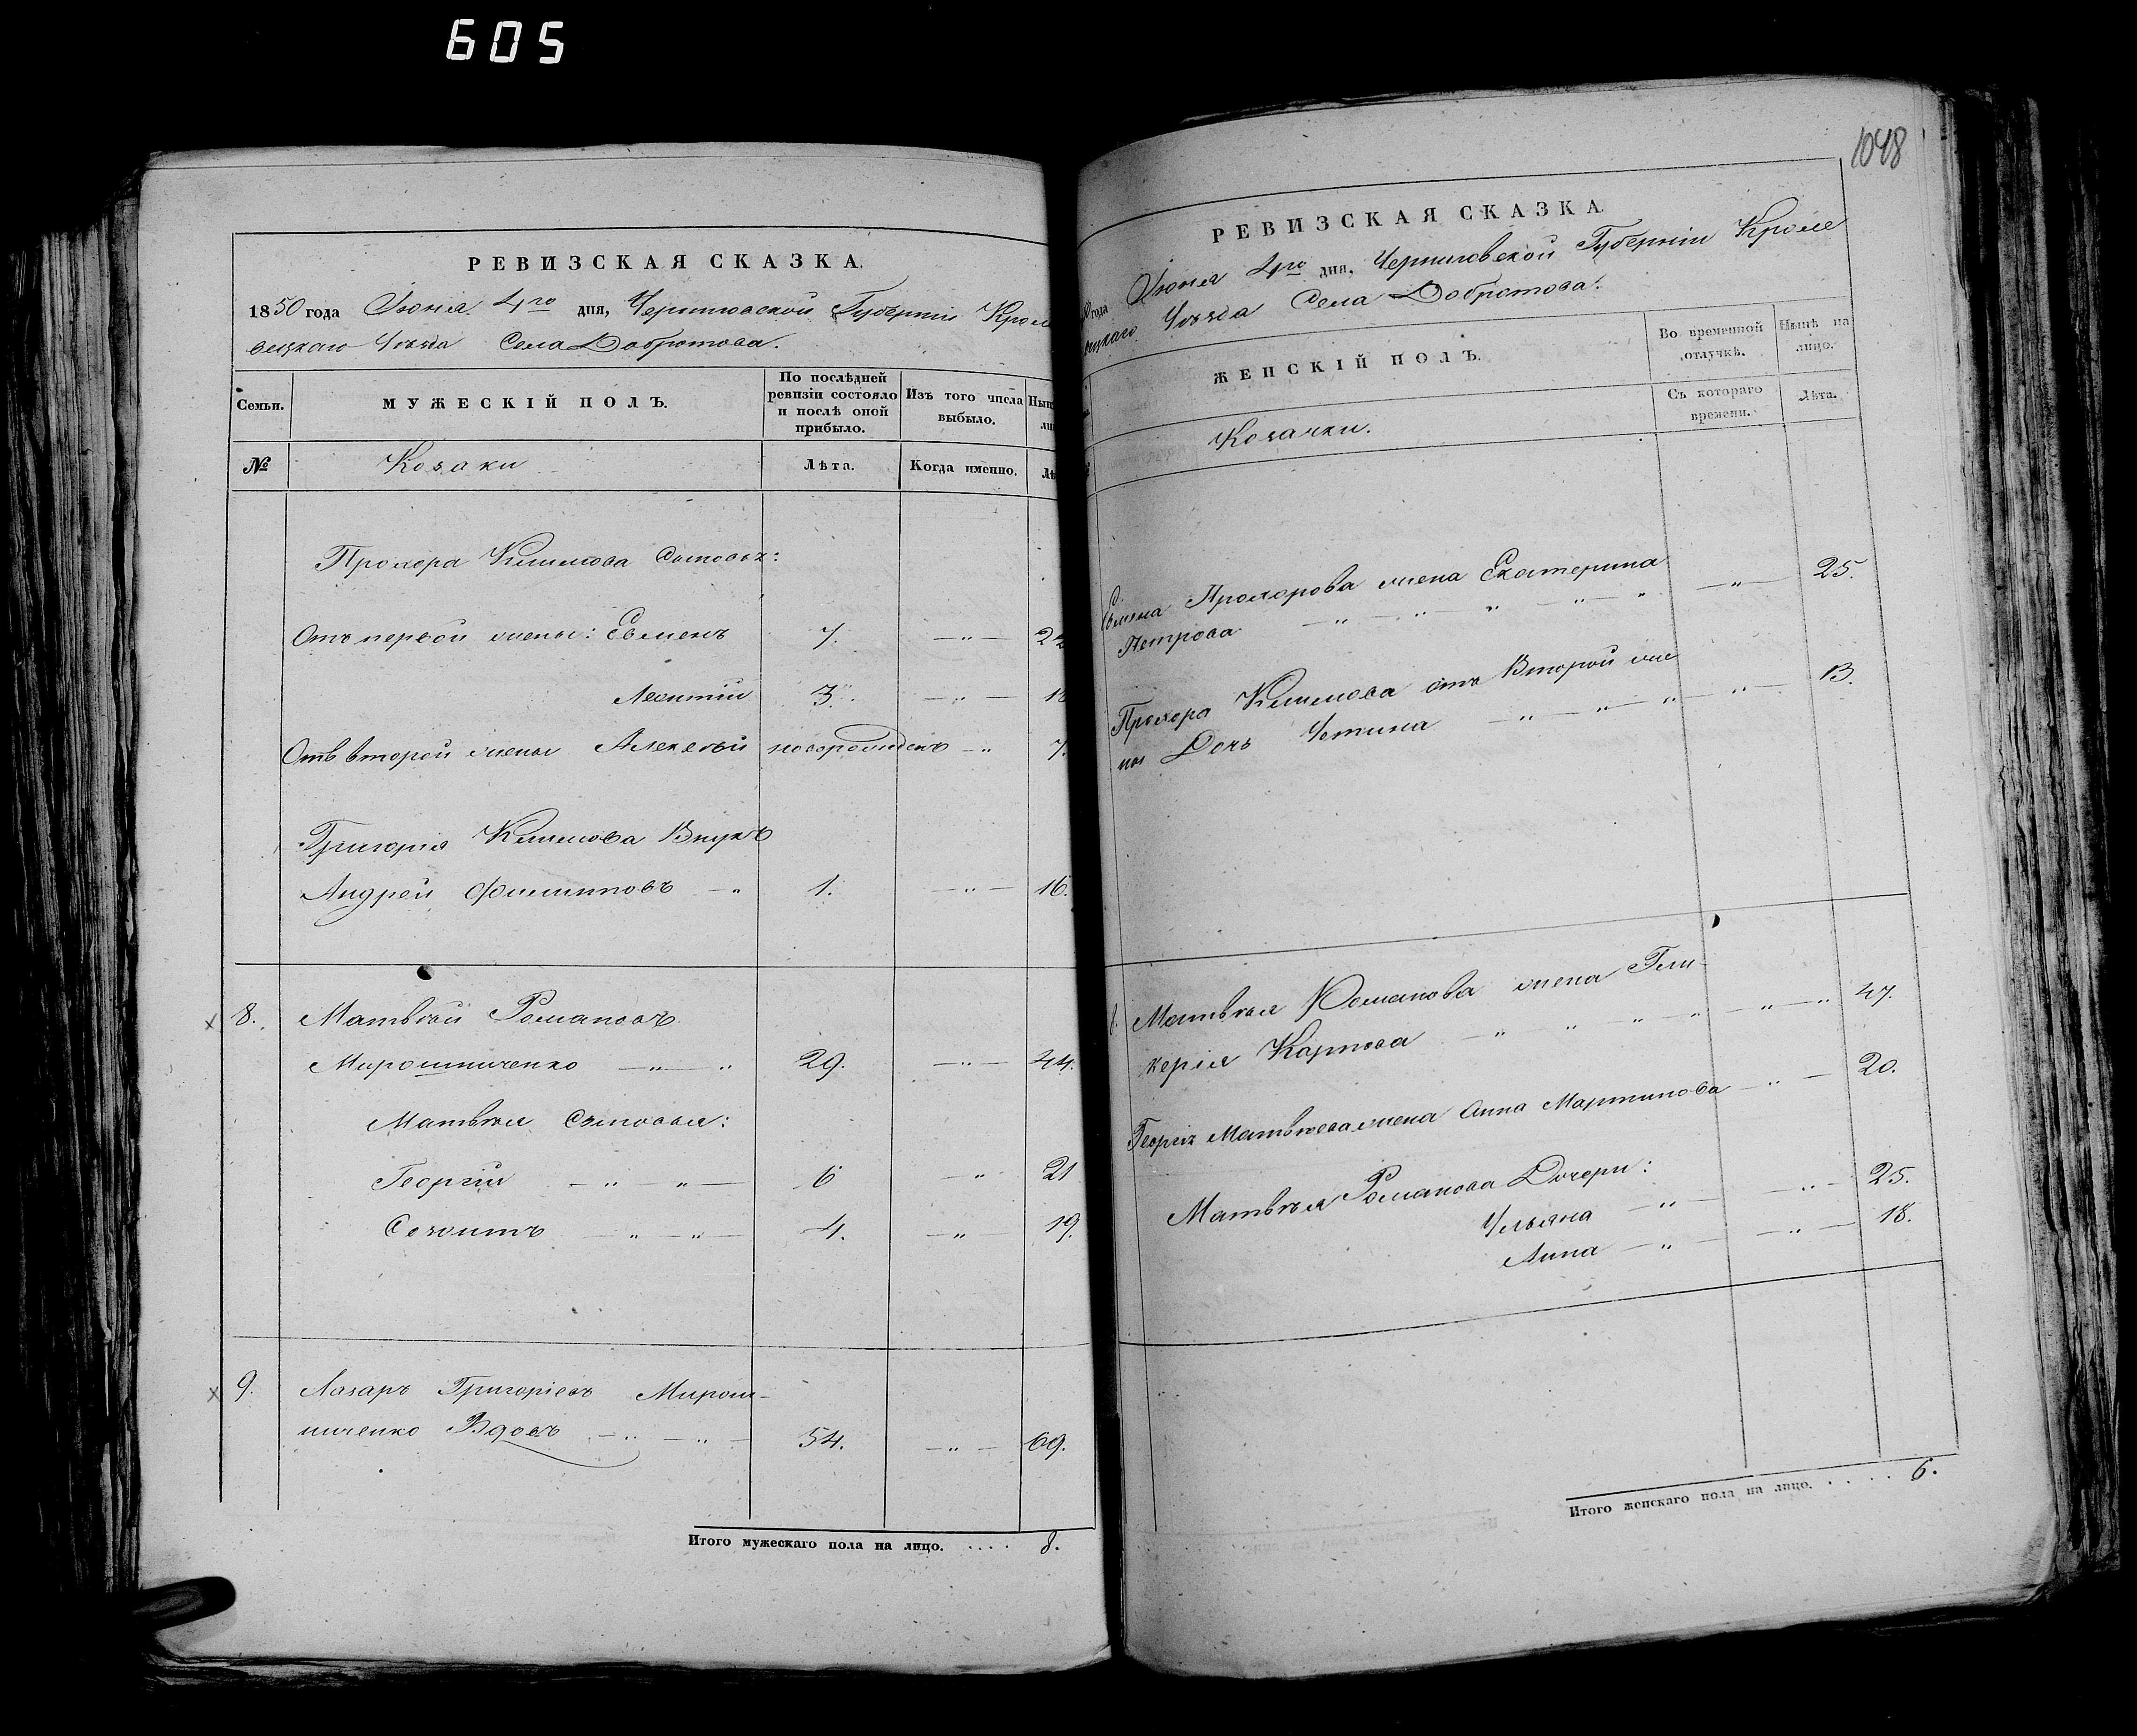 605
РЕВИЗСКАЯ СКАЗКА.
1850 года Июня 4го дня, Черниговской Губернии Кроле
вецкаго Уѣзда Села Добротова.
Семьи.
МУЖЕСКІЙ ПОЛЪ.
По послѣдней ревизіи состояло и послѣ оной прибыло.
Изъ того числа выбыло.
№
Козаки
Лѣта.
Когда именно.
Прохора Климова Сыновья:
Отъ первой жены: Евменъ 7. —„—
Леонтій 3. —„—
Отъ второй жены Алексѣй новорожденъ —„ 7.
Григорія Климова Внукъ
Андрей Филиповъ —„ 1. —„— 16.
8. Матвѣй Романовъ
Мирошниченко —„— „ 29. —„— 44.
Матвѣя Сыновья:
Георгій —„—„— 6 —„ 21
Созонтъ —„—„— 4. —„— 19.
9. Лазарь Григоріевъ Мирош-
ниченко Вдовъ —„—„— 54. —„— 69.
Итого мужескаго пола на лицо. . . . . 8.
1048
РЕВИЗСКАЯ СКАЗКА
года Июня 4го дня, Черниговской Губерніи Кроле
вецкаго Уѣзда Села Добротова.
ЖЕНСКІЙ ПОЛЪ.
Во временной отлучкѣ.
Нынѣ на лицо.
Козачки.
Съ котораго времени.
Лѣта.
Евмена Прохорова жена Екатерина
Петрова —„—„—„—„—„ —„— 25.
Прохора Климова отъ Второй же
ны Дочь Устина —„—„—„ —„— 13.
Матвѣя Романова жена Гли-
керія Карпова —„ „ „ „ —„—„ 47.
Георгія Матвѣева жена Анна Мартинова —„— 20.
Матвѣя Романова Дочери:
Ульяна —„— —„— 25.
Анна —„— —„— 18.
Итого женскаго пола на лицо. . . . . 6.